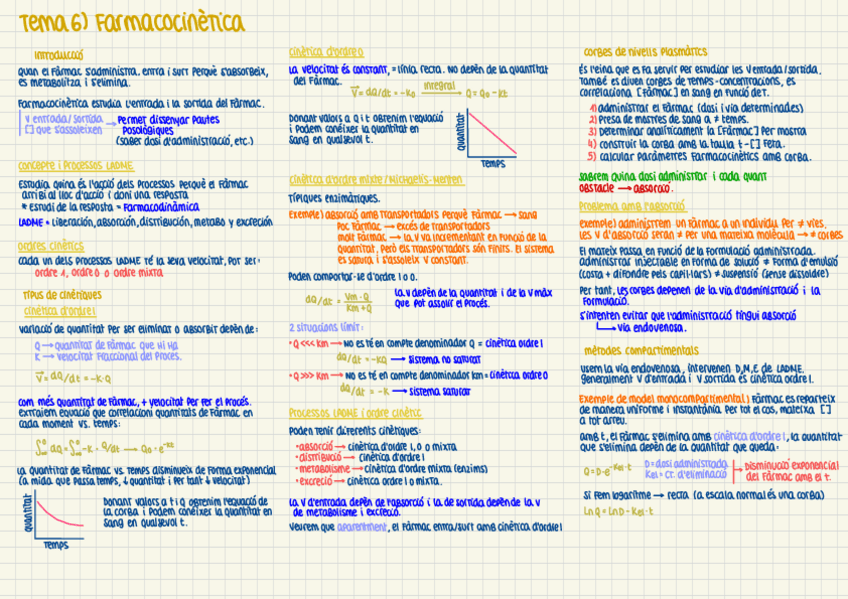 Tema 6) Farmacocinètica
Introducció
Quan el fàrmac s'administra, entra i surt perquè s'absorbeix,
es metabolitza i s'elimina.
Farmacocinètica estudia l'entrada i la sortida del fàrmac.
V entrada/sortida → Permet dissenyar pautes
[] que s'assoleixen posològiques
(saber dosi d'administració, etc.)
concepte i Processos LADME
Estudia quina és l'acció dels processos perquè el fàrmac
arribi al lloc d'acció i doni una resposta
* estudi de la resposta = Farmacodinàmica
LADME = Liberación, absorción, distribución, metabo y excreción
ordres cinètics
cada un dels processos LADME té la seva velocitat, pot ser:
ordre 1, ordre 0 o ordre mixta
Tipus de cinètiques
cinètica d'ordre 1
variació de quantitat per ser eliminar o absorbit depèn de:
Q → quantitat de fàrmac que hi ha
K → velocitat fraccional del procés.
V = dQ/dt = -K·Q
com més quantitat de fàrmac, + velocitat per fer el procés.
extraiem equació que correlacioni quantitats de fàrmac en
cada moment vs. temps:
La quantitat de fàrmac vs. temps disminueix de forma exponencial
(a mida que passa temps, ↓ quantitat i per tant ↓ velocitat)
quantitat
Temps
Donant valors a t i Q obtenim l'equació de
la corba i podem conèixer la quantitat en
sang en qualsevol t.
cinètica d'ordre 0
La velocitat és constant, = línia recta. No depèn de la quantitat
del fàrmac.
V = dQ/dt = -K₀ integral → Q = Q₀ - Kt
Donant valors a Q i t obtenim l'equació
i podem conèixer la quantitat en
sang en qualsevol t.
Quantitat
Temps
cinètica d'ordre mixte/Michaelis-Menten
Típiques enzimàtiques.
Exemple) absorció amb transportadors perquè fàrmac → sang
Poc fàrmac → excés de transportadors
molt fàrmac → la V va incrementant en funció de la
quantitat, però els transportadors són finits. El sistema
es satura i s'assoleix V constant.
Poden comportar-se d'ordre 1 o 0.
dQ/dt = Vm·Q / Km+Q
La V depèn de la quantitat i de la V màx
que pot assolir el procés.
2 situacions límit:
• Q <<< Km → No es té en compte denominador Q = cinètica ordre 1
dQ/dt = -KQ → sistema no saturat
• Q >>> Km → No es té en compte denominador Km = cinètica ordre 0
dQ/dt = -K → sistema saturat
Processos LADME i ordre cinètic
Poden tenir diferents cinètiques:
• absorció → cinètica d'ordre 1, 0 o mixta
• distribució → cinètica d'ordre 1
• metabolisme → cinètica d'ordre mixta (enzims)
• excreció → cinètica ordre 1 o mixta.
La V d'entrada depèn de l'absorció i la de sortida depèn de la V
de metabolisme i excreció.
veurem que aparentment, el fàrmac entra/surt amb cinètica d'ordre 1
corbes de nivells plasmàtics
És l'eina que es fa servir per estudiar les V entrada/sortida.
També es diuen corbes de temps-concentracions, es
correlaciona [fàrmac] en sang en funció de T.
1) administrar el fàrmac (dosi i via determinades)
2) Presa de mostres de sang a ≠ temps.
3) Determinar analíticament la [fàrmac] per mostra
4) construir la corba amb la taula t-[] feta.
5) calcular paràmetres farmacocinètics amb corba.
sabrem quina dosi administrar i cada quant
obstacle → absorció.
Problema amb l'absorció
exemple) administrem un fàrmac a un individu per ≠ vies,
les V d'absorció seran ≠ per una mateixa molècula → ≠ corbes
El mateix passa en funció de la formulació administrada.
administrar injectable en forma de solució ≠ forma d'emulsió
(costa + difondre pels capil·lars) ≠ suspensió (sense dissoldre)
Per tant, les corbes depenen de la via d'administració i la
formulació.
s'intenten evitar que l'administració tingui absorció
→ via endovenosa.
mètodes compartimentals
usem la via endovenosa, intervenen D,M,E de LADME.
generalment V d'entrada i V sortida és cinètica ordre 1.
Exemple de model monocompartimental) fàrmac es reparteix
de manera uniforme i instantània per tot el cos, mateixa []
a tot arreu.
amb t, el fàrmac s'elimina amb cinètica d'ordre 1, la quantitat
que s'elimina depèn de la quantitat que queda:
Q = D·e^-Kel·t D = dosi administrada
Kel = ct. d'eliminació → Disminució exponencial
del fàrmac amb el t.
si fem logaritme → recta (a escala normal és una corba)
Ln Q = Ln D - Kel·t